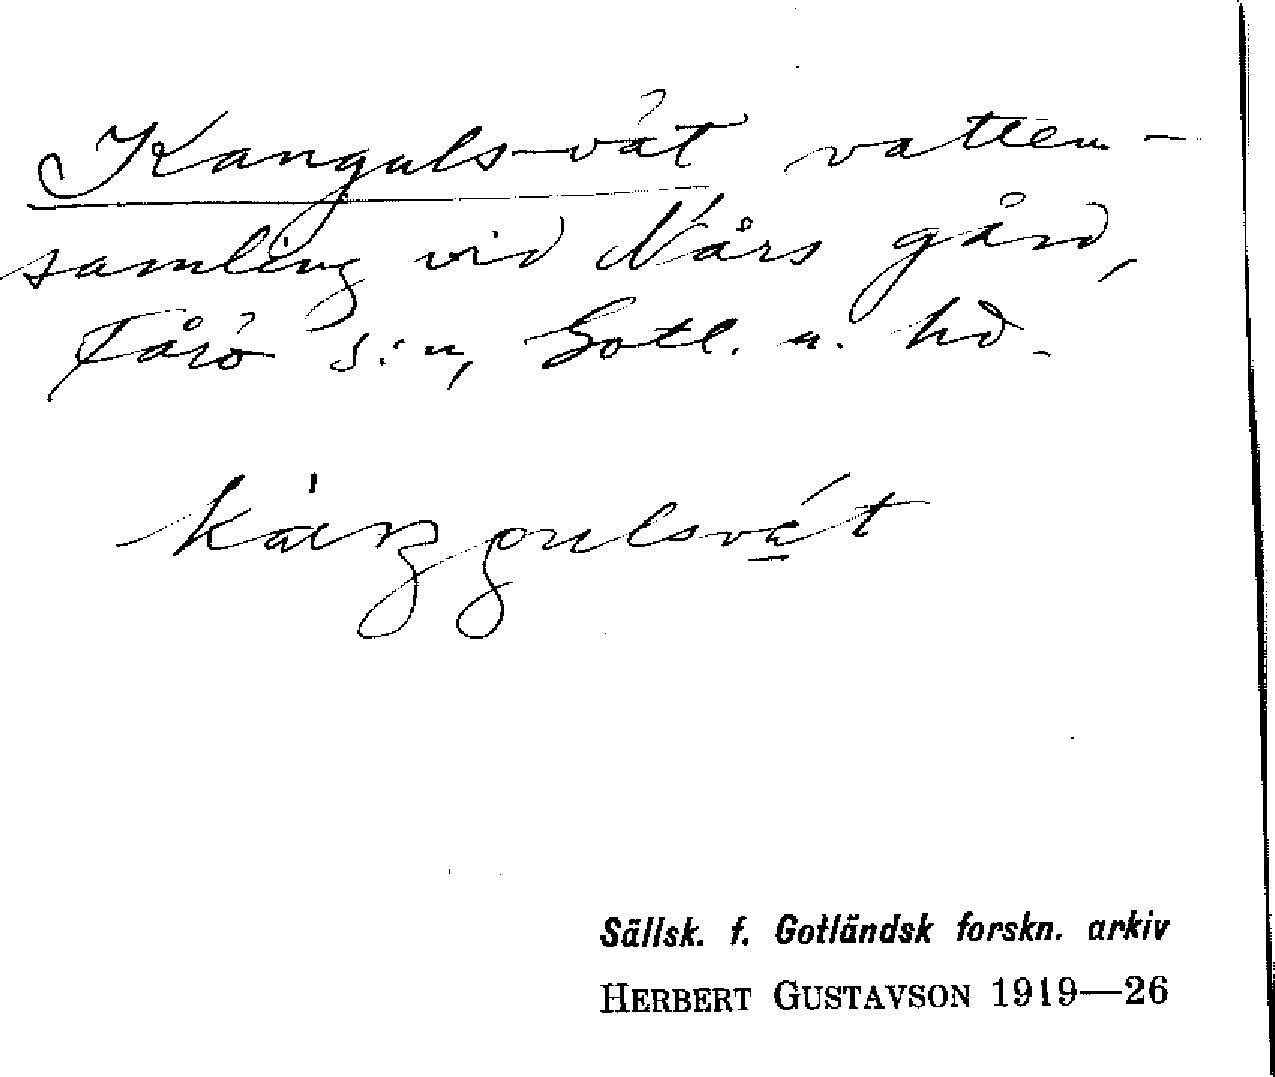 Kanguls-vät vatten-
samling vid Nårs gård,
Fårö s:n, Gotl. n. hd.
Sällsk. f. Gotländsk forskn. arkiv
HERBERT GUSTAVSON 1919—26